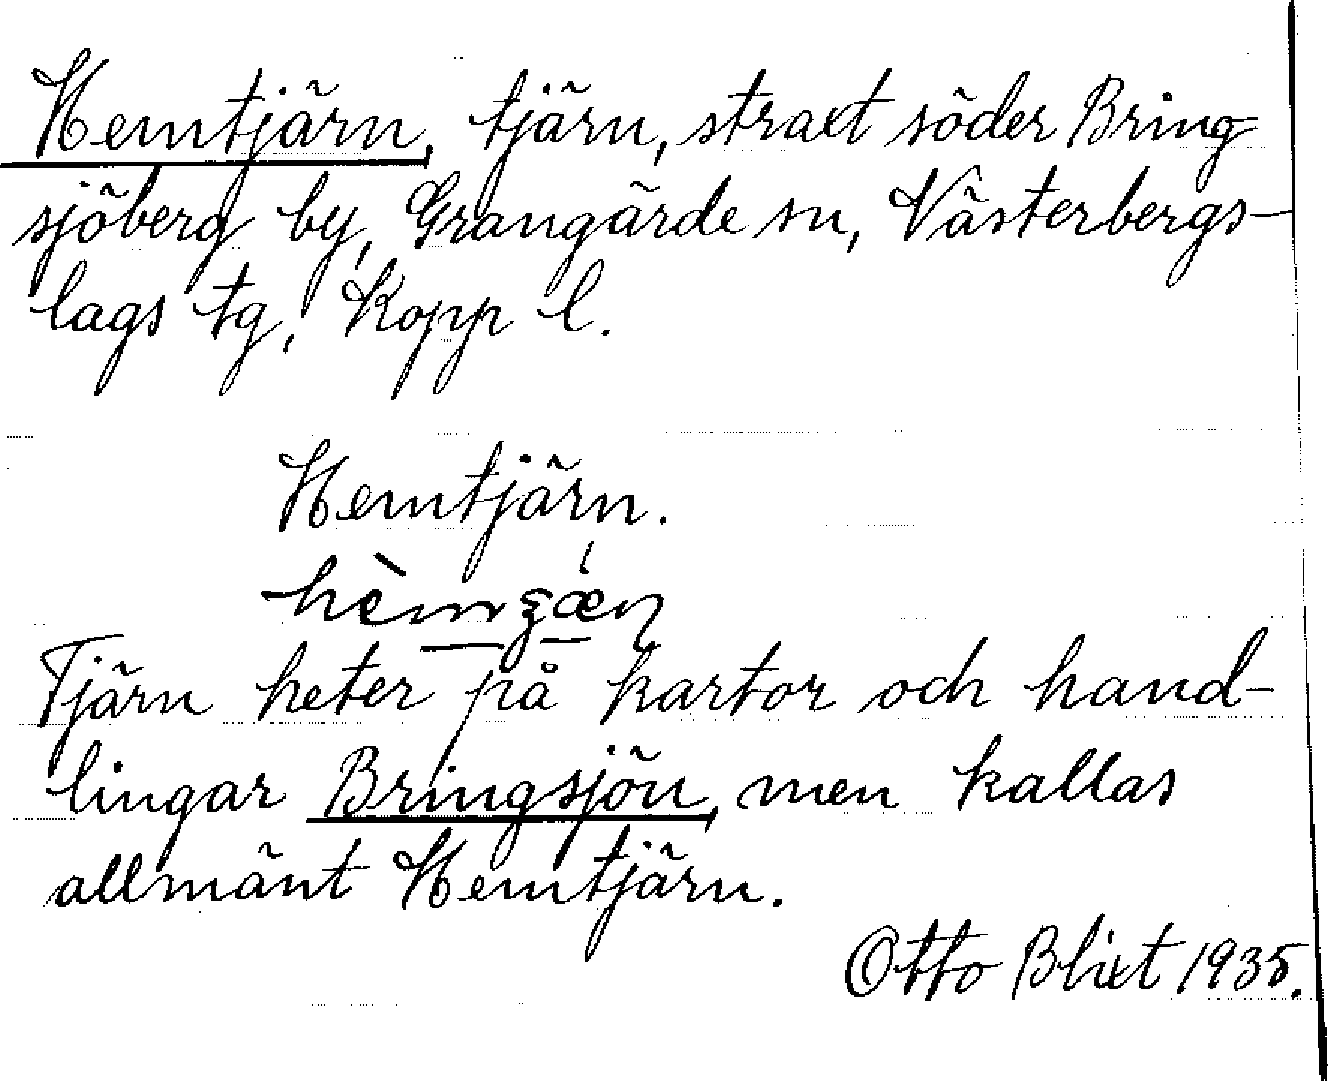 Hemtjärn, tjärn, straxt söder Bring
sjöberg by, Grangärde sn, Västerbergs-
lags tg, Kopp l.
Hemtjärn.
Tjärn heter på kartor och hand-
lingar Bringsjön, men kallas
allmänt Hemtjärn.
Otto Blixt 1935.